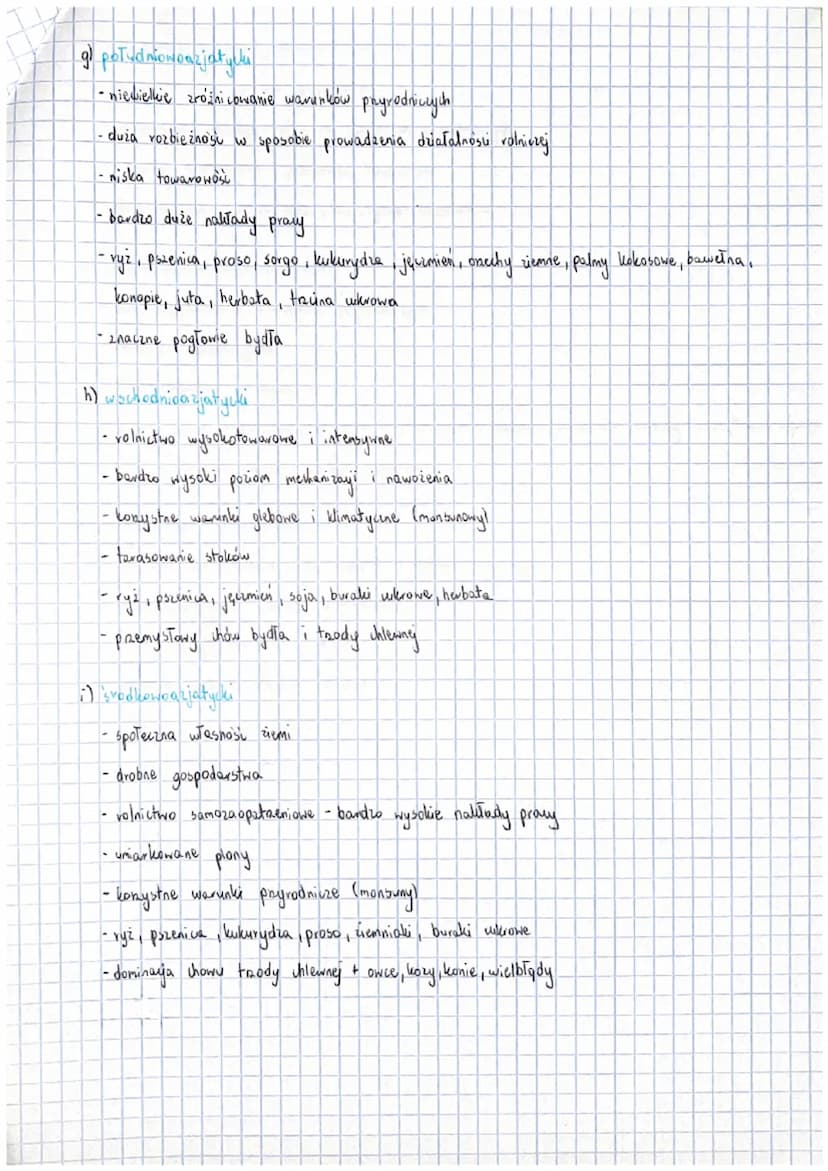 g) południowoazjatycki
- niewielkie zróżnicowanie warunków przyrodniczych
- duża rozbieżność w sposobie prowadzenia działalności rolniczej
- niska towarowość
- bardzo duże nakłady pracy
- ryż, pszenica, proso, sorgo, kukurydza, jęczmień, orzechy ziemne, palmy kokosowe, bawełna,
konopie, juta, herbata, trzcina cukrowa
- znaczne pogłowie bydła
h) wschodnioazjatycki
- rolnictwo wysokotowarowe i intensywne
- bardzo wysoki poziom mechanizacji i nawożenia
- korzystne warunki glebowe i klimatyczne (monsunowy)
- tarasowanie stoków
- ryż, pszenica, jęczmień, soja, buraki cukrowe, herbata
- przemysłowy chów bydła i trzody chlewnej
i) środkowoazjatycki
- społeczna własność ziemi
- drobne gospodarstwa
- rolnictwo samozaopatrzeniowe - bardzo wysokie nakłady pracy
- umiarkowane plony
- korzystne warunki przyrodnicze (monsuny)
- ryż, pszenica, kukurydza, proso, ziemniaki, buraki cukrowe
- dominacja chowu trzody chlewnej + owce, kozy, konie, wielbłądy